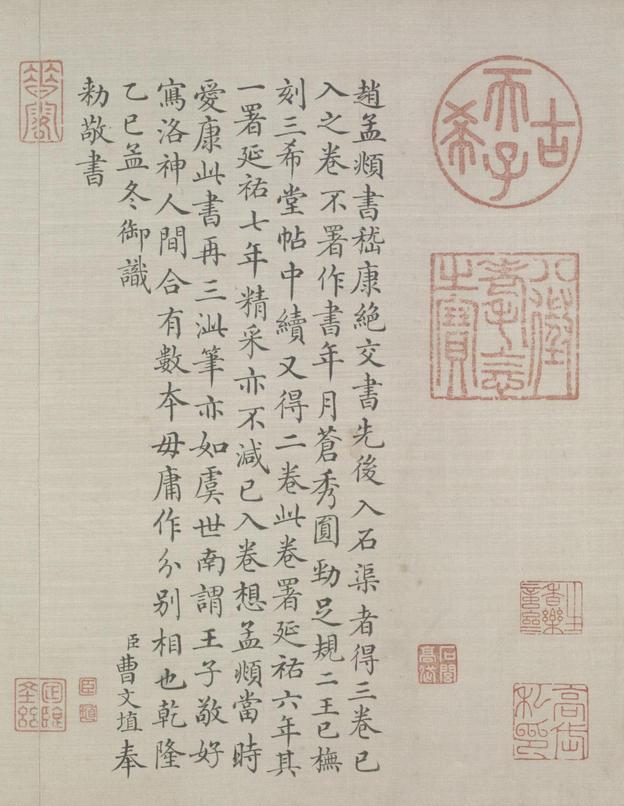 古希天子
八徵耄念之寶
趙孟頫書嵇康絶交書先後入石渠者得三卷已
入之卷不署作書年月蒼秀圓勁足規二王已橅
刻三希堂帖中續又得二卷此卷署延祐六年其
一署延祐七年精采亦不減已入卷想孟頫當時
愛康此書再三泚筆亦如虞世南謂王子敬好
寫洛神人間合有數本毋庸作分别相也乾隆
乙巳孟冬御識
臣曹文埴奉
勅敬書
臣埴